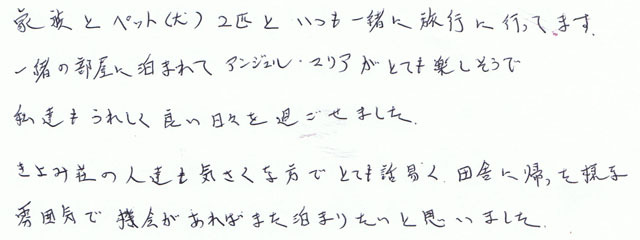 家族とペット(犬)2匹といつも一緒に旅行に行ってます。
一緒の部屋に泊まれてアンジェル・マリアがとても楽しそうで
私達もうれしく良い日々を過ごせました。
きよみ荘の人達も気さくな方でとても話易く、田舎に帰った様な
雰囲気で機会があればまた泊まりたいと思いました。